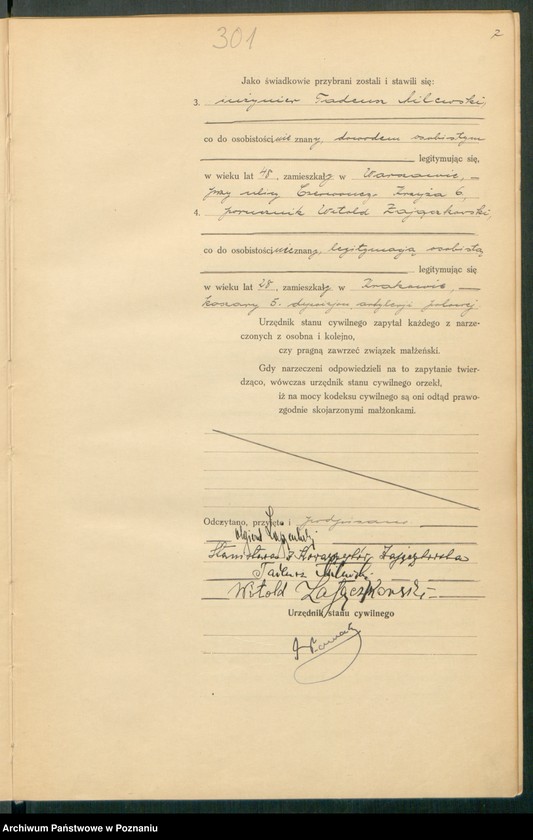 301
2
Jako świadkowie przybrani zostali i stawili się:
3. inżynier Tadeusz Milewski,
co do osobistości nie znany, dowodem osobistym
legitymując się,
w wieku lat 48, zamieszkały w Warszawie, —
przy ulicy Czerwonego Krzyża 6,
4. porucznik Witold Zajączkowski,
co do osobistości nie znany, legitymacją osobistą
legitymując się
w wieku lat 28, zamieszkały w Krakowie, —
koszary 5. dywizjonu artylerji
Urzędnik stanu cywilnego zapytał każdego z narze-
czonych z osobna i kolejno,
czy pragną zawrzeć związek małżeński.
Gdy narzeczeni odpowiedzieli na to zapytanie twier-
dząco, wówczas urzędnik stanu cywilnego orzekł,
iż na mocy kodeksu cywilnego są oni odtąd prawo-
zgodnie skojarzonymi małżonkami.
Odczytano, przyjęto i podpisano
Stanisława z Zajączkowska
Tadeusz Milewski
Witold Zajączkowski
Urzędnik stanu cywilnego
Archiwum Państwowe w Poznaniu